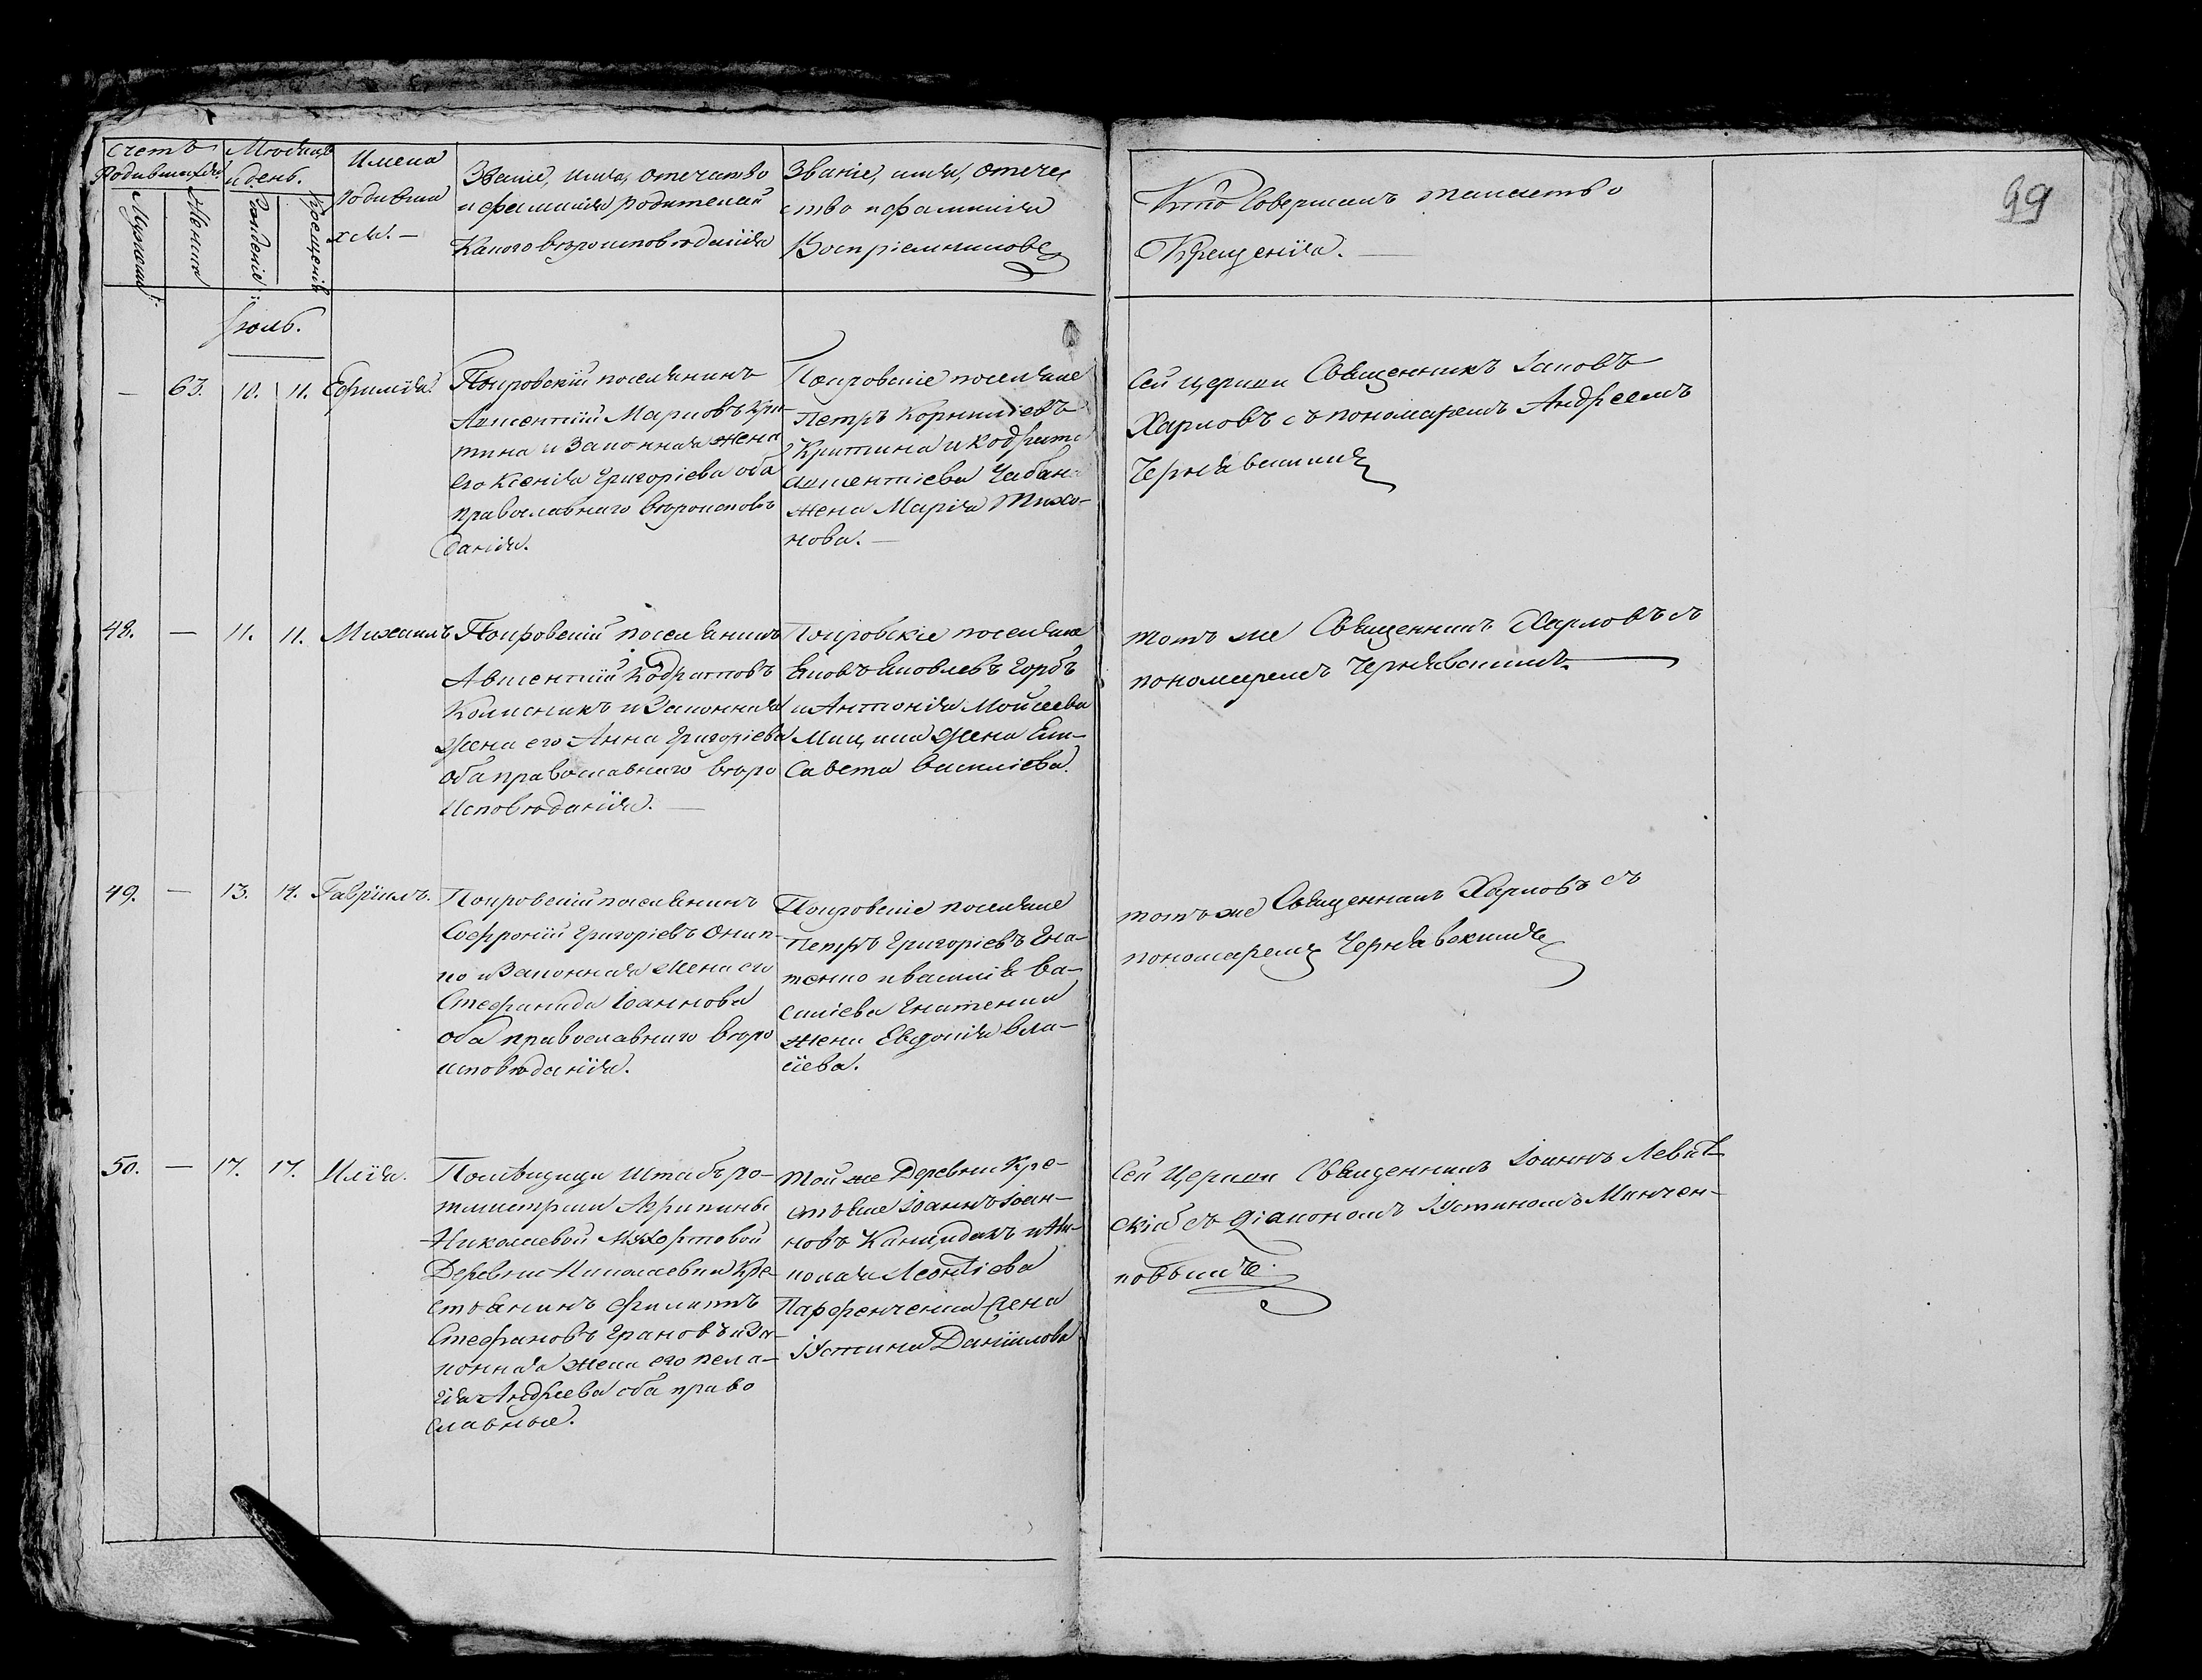 Счетъ
Родившихся.
Мужеска.
Женска
Месяцъ
и день.
Рожденіе
Крещеніе
Имена
родивши
хся. —
Званіе, имя, отечество
и фамилія родителей
Какого вѣроисповѣданія
Званіе, имя, отече
ство и фамилія
Воспріемниковъ
Кто Совершалъ таинство
Крещенія. —
99
Іюль.
— 63. 10. 11. Ефимія.
Покровскій поселянинъ
Авксентій Марковъ Кри-
тина и Законная жена
его Ксенія Григоріева оба
православнаго вѣроисповѣ
данія.
Покровскіе поселяне
Петръ Корниліевъ
Критина и Кодрата
Авксентіева Чабана
жена Марія Тихо-
нова. —
Сей церкви Священникъ Іаковъ
Харловъ съ пономаремъ Андреемъ
Чернявскимъ
48. — 11. 11. Михаилъ
Покровскій поселянинъ
Авксентій Кодратовъ
Колисникъ и Законная
Жена его Анна Григоріева
оба православнаго вѣро
исповѣданія. —
Покровскіе поселяне
Яковъ Яковлевъ Горбъ
и Антонія Мойсеева
жена Ели-
савета Василіева.
тотъ же Священникъ Харловъ съ
пономаремъ Чернявскимъ.
49. — 13. 14. Гавріилъ.
Покровскій поселянинъ
Софроній Григоріевъ Онип-
ко и Законная жена его
Стефанида Іоаннова
оба православнаго вѣро
исповѣданія.
Покровскіе поселяне
Петръ Григоріевъ Гна-
тенко и Василія Ва-
силіева Гнатенка
жена Евдокія Вла-
сіева.
тотъ же Священникъ Харловъ съ
пономаремъ Чернявскимъ
50. — 17. 17. Илія.
Помѣщицы Штабъ ро-
тмистрши Агрипины
Николаевой Мухортовой
Деревни Николаевки Кре-
стьянинъ Филиппъ
Стефановъ Грановъ и За-
конная жена его Пела-
гія Андреева оба право
славные.
Той же Деревни Кре-
стьяне Іоаннъ Іоан-
новъ и Ни-
колая Леонтіева
Парфенченка жена
Іустина Даніилова
Сей Церкви Священникъ Іоаннъ Левит-
скій съ Діакономъ Іустиномъ Минчен-
ковымъ.